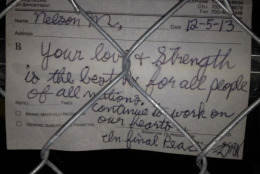 Name Nelson M., Date 12-5-13
Address
Your love & Strength
is the best Rx for all people
of all nations.
continue to work on
our hearts.
In final Peace